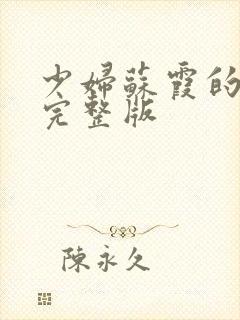 少婦蘇霞的
完整版
陳永久